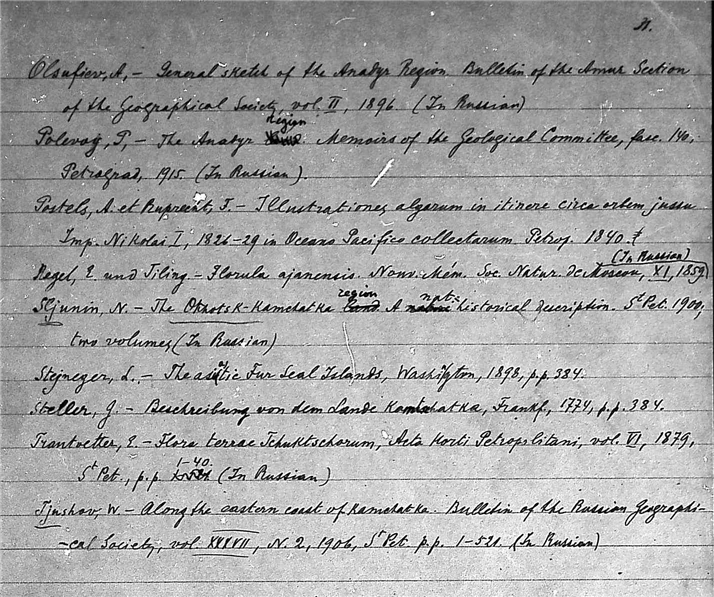 21.
Olsufiev, A, – General sketch of the Anadyr Region. Bulletin of the Amur Section
of the Geographical Society, vol. II, 1896. (In Russian)
Polevoy, P, – The Anadyr region. Memoirs of the Geological Committee, fasc. 140,
Petrograd, 1915. (In Russian).
Postels, A. et Ruprecht, F. – Illustrationes algarum in itinere circa orbem jussu
Imp. Nikolai I, 1826–29 in Oceano Pacifico collectarum. Petrop. 1840.
Regel, E. und Tiling – Florula ajanensis. Nouv. Mém. Soc. Natur. de Moscou, XI, 1859) (In Russian)
Sljunin, N. – The Okhotsk-Kamchatka region. A nat. historical description. St Pet. 1900,
two volumes, (In Russian)
Stejneger, L. – The asiatic Fur Seal Islands, Washington, 1898, p.p. 384.
Steller, G. – Beschreibung von dem Lande Kamtschatka, Frankf., 1774, p.p. 384.
Trautvetter, E. – Flora terrae Tchuktschorum, Acta Horti Petropolitani, vol. VI, 1879,
St Pet., p.p. 1–40 (In Russian)
Tjushov, W – Along the eastern coast of Kamchatka. Bulletin of the Russian Geographi-
-cal Society, vol. XXXVII, N. 2, 1906, St Pet. p.p. 1–521. (In Russian)